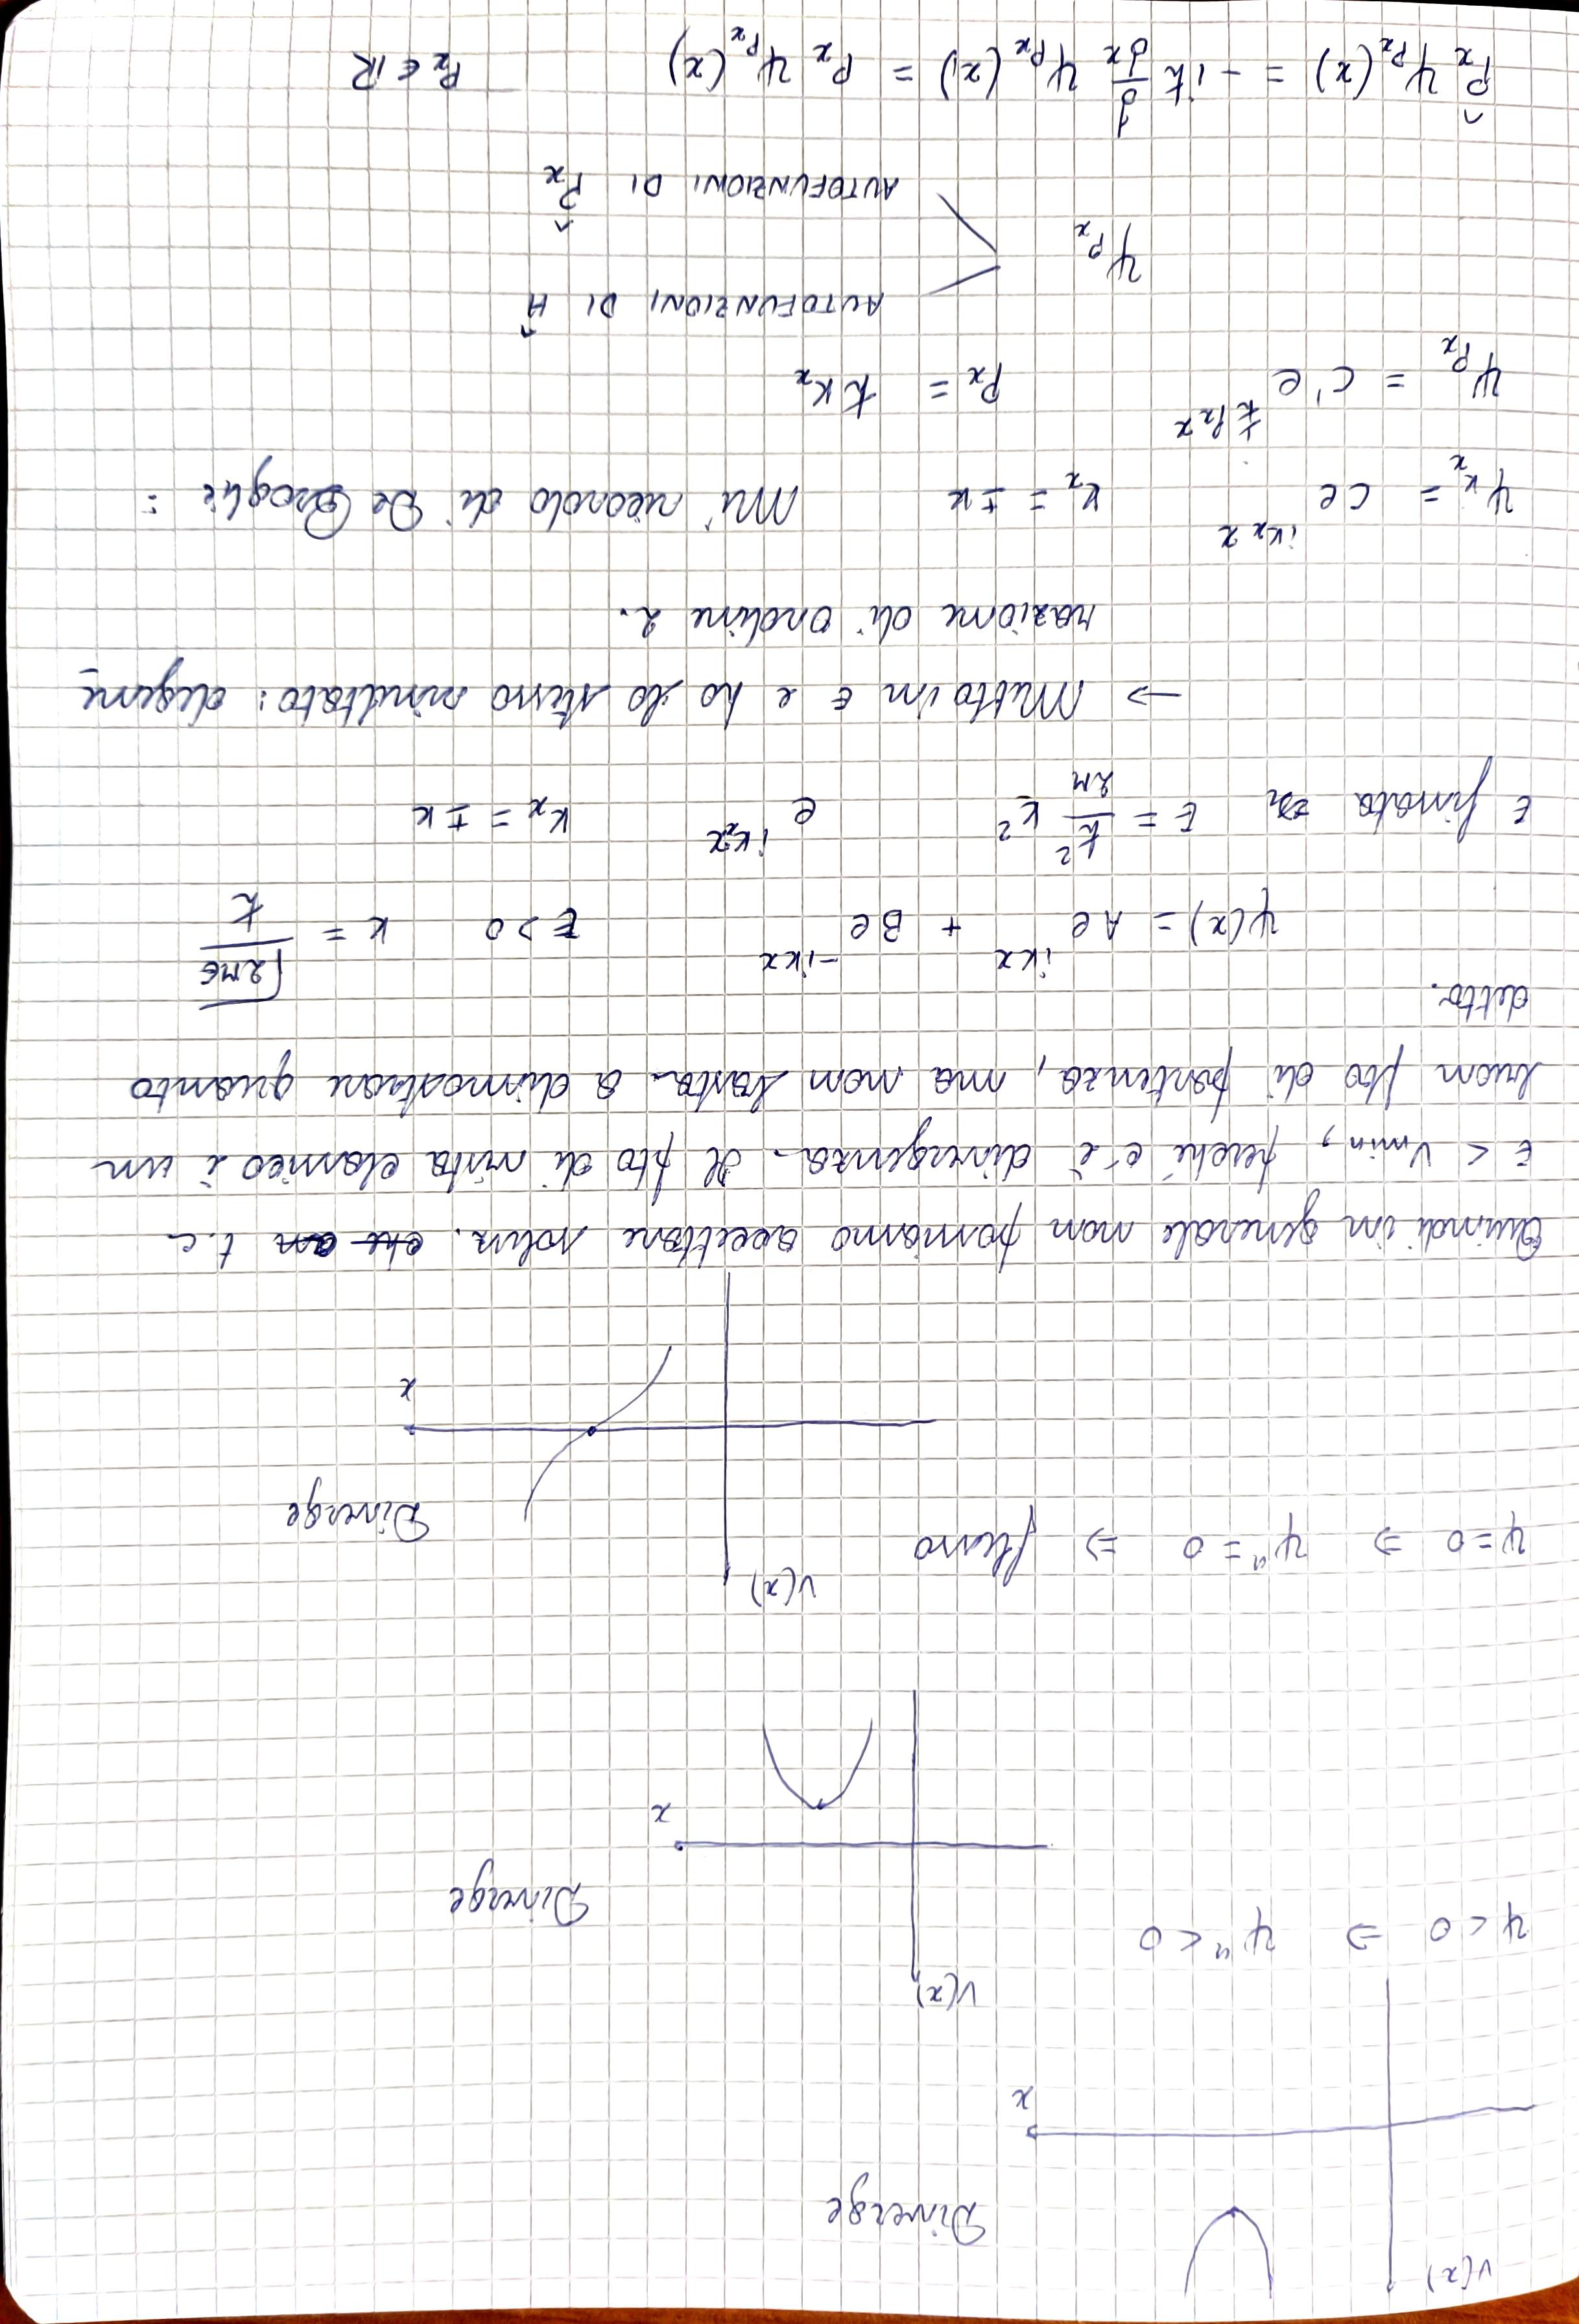 V(x)
Diverge
x
V(x)
ψ < 0 ⇒ ψ'' < 0
Diverge
x
V(x)
ψ = 0 ⇒ ψ'' = 0 ⇒ flesso
Diverge
x
Quindi in generale non possiamo accettare soluz. che an t.c.
E < Vmin, perché c'è divergenza. Il pto di vista classico è un
buon pto di partenza, ma non basta a dimostrare quanto
detto.
ψ(x) = A e^{ikx} + B e^{-ikx} E > 0 k = √(2ME)/ħ
E fissata E = ħ²/2M k² e^{ik_x x} k_x = ± k
→ Metto in E e ho lo stesso risultato: degene
razione di ordine 2.
ψ_{k_x} = c e^{ik_x x} k_x = ± k Mi ricordo di De Broglie :
ψ_{p_x} = c' e^{i/ħ p_x x} p_x = ħ k_x
AUTOFUNZIONI DI Ĥ
ψ_{p_x}
AUTOFUNZIONI DI P̂_x
P̂_x ψ_{p_x}(x) = -iħ d/dx ψ_{p_x}(x) = p_x ψ_{p_x}(x) p_x ∈ ℝ